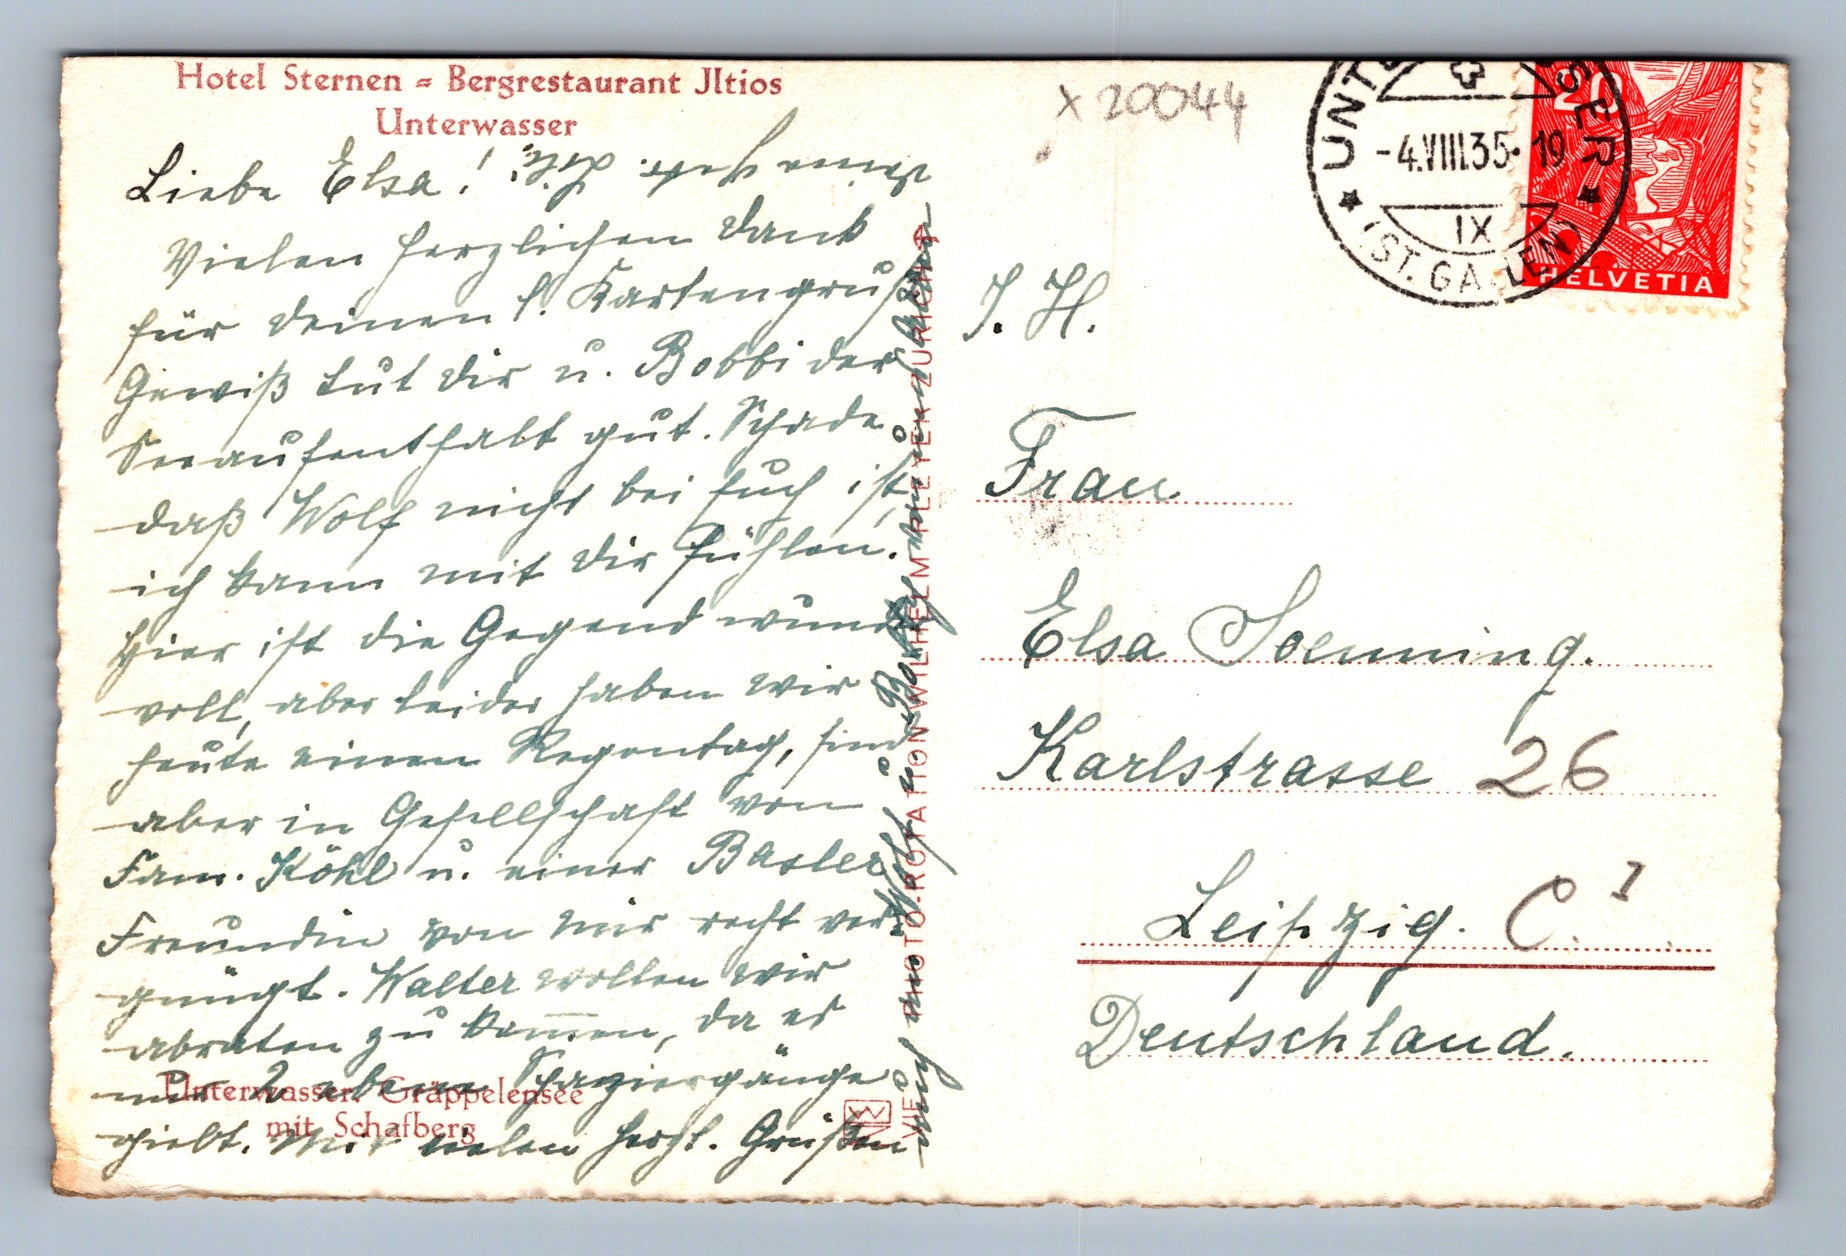 Hotel Sternen = Bergrestaurant Jltios
Unterwasser
Liebe Elsa!
Vielen herzlichen Dank
für deinen l. Kartengruß
Gewiß tut dir u. Bobbi der
Seeaufenthalt gut. Schade
daß Wolf nicht bei Euch ist,
ich kann mit dir fühlen.
Hier ist die Gegend wunder
voll, aber leider haben wir
heute einen Regentag, sind
aber in Gesellschaft von
Fam. Köhl u. einer Basler
Freundin von mir recht ver-
gnügt. Walter wollen wir
abraten zu kommen, da es
nur 2 ebene Spaziergänge
giebt. Mit vielen herzl. Grüßen
auch an Wolf u. Bobby
Unterwasser Gräppelensee
mit Schafberg
PHOTO-ROTATION WILHELM PLEYER ZÜRICH
X 20044
UNTERWASSER
-4.VIII.35-19
IX
(ST. GALLEN)
20
HELVETIA
I. H.
Frau
Elsa Soenning.
Karlstrasse 26
Leipzig. C. 1
Deutschland.